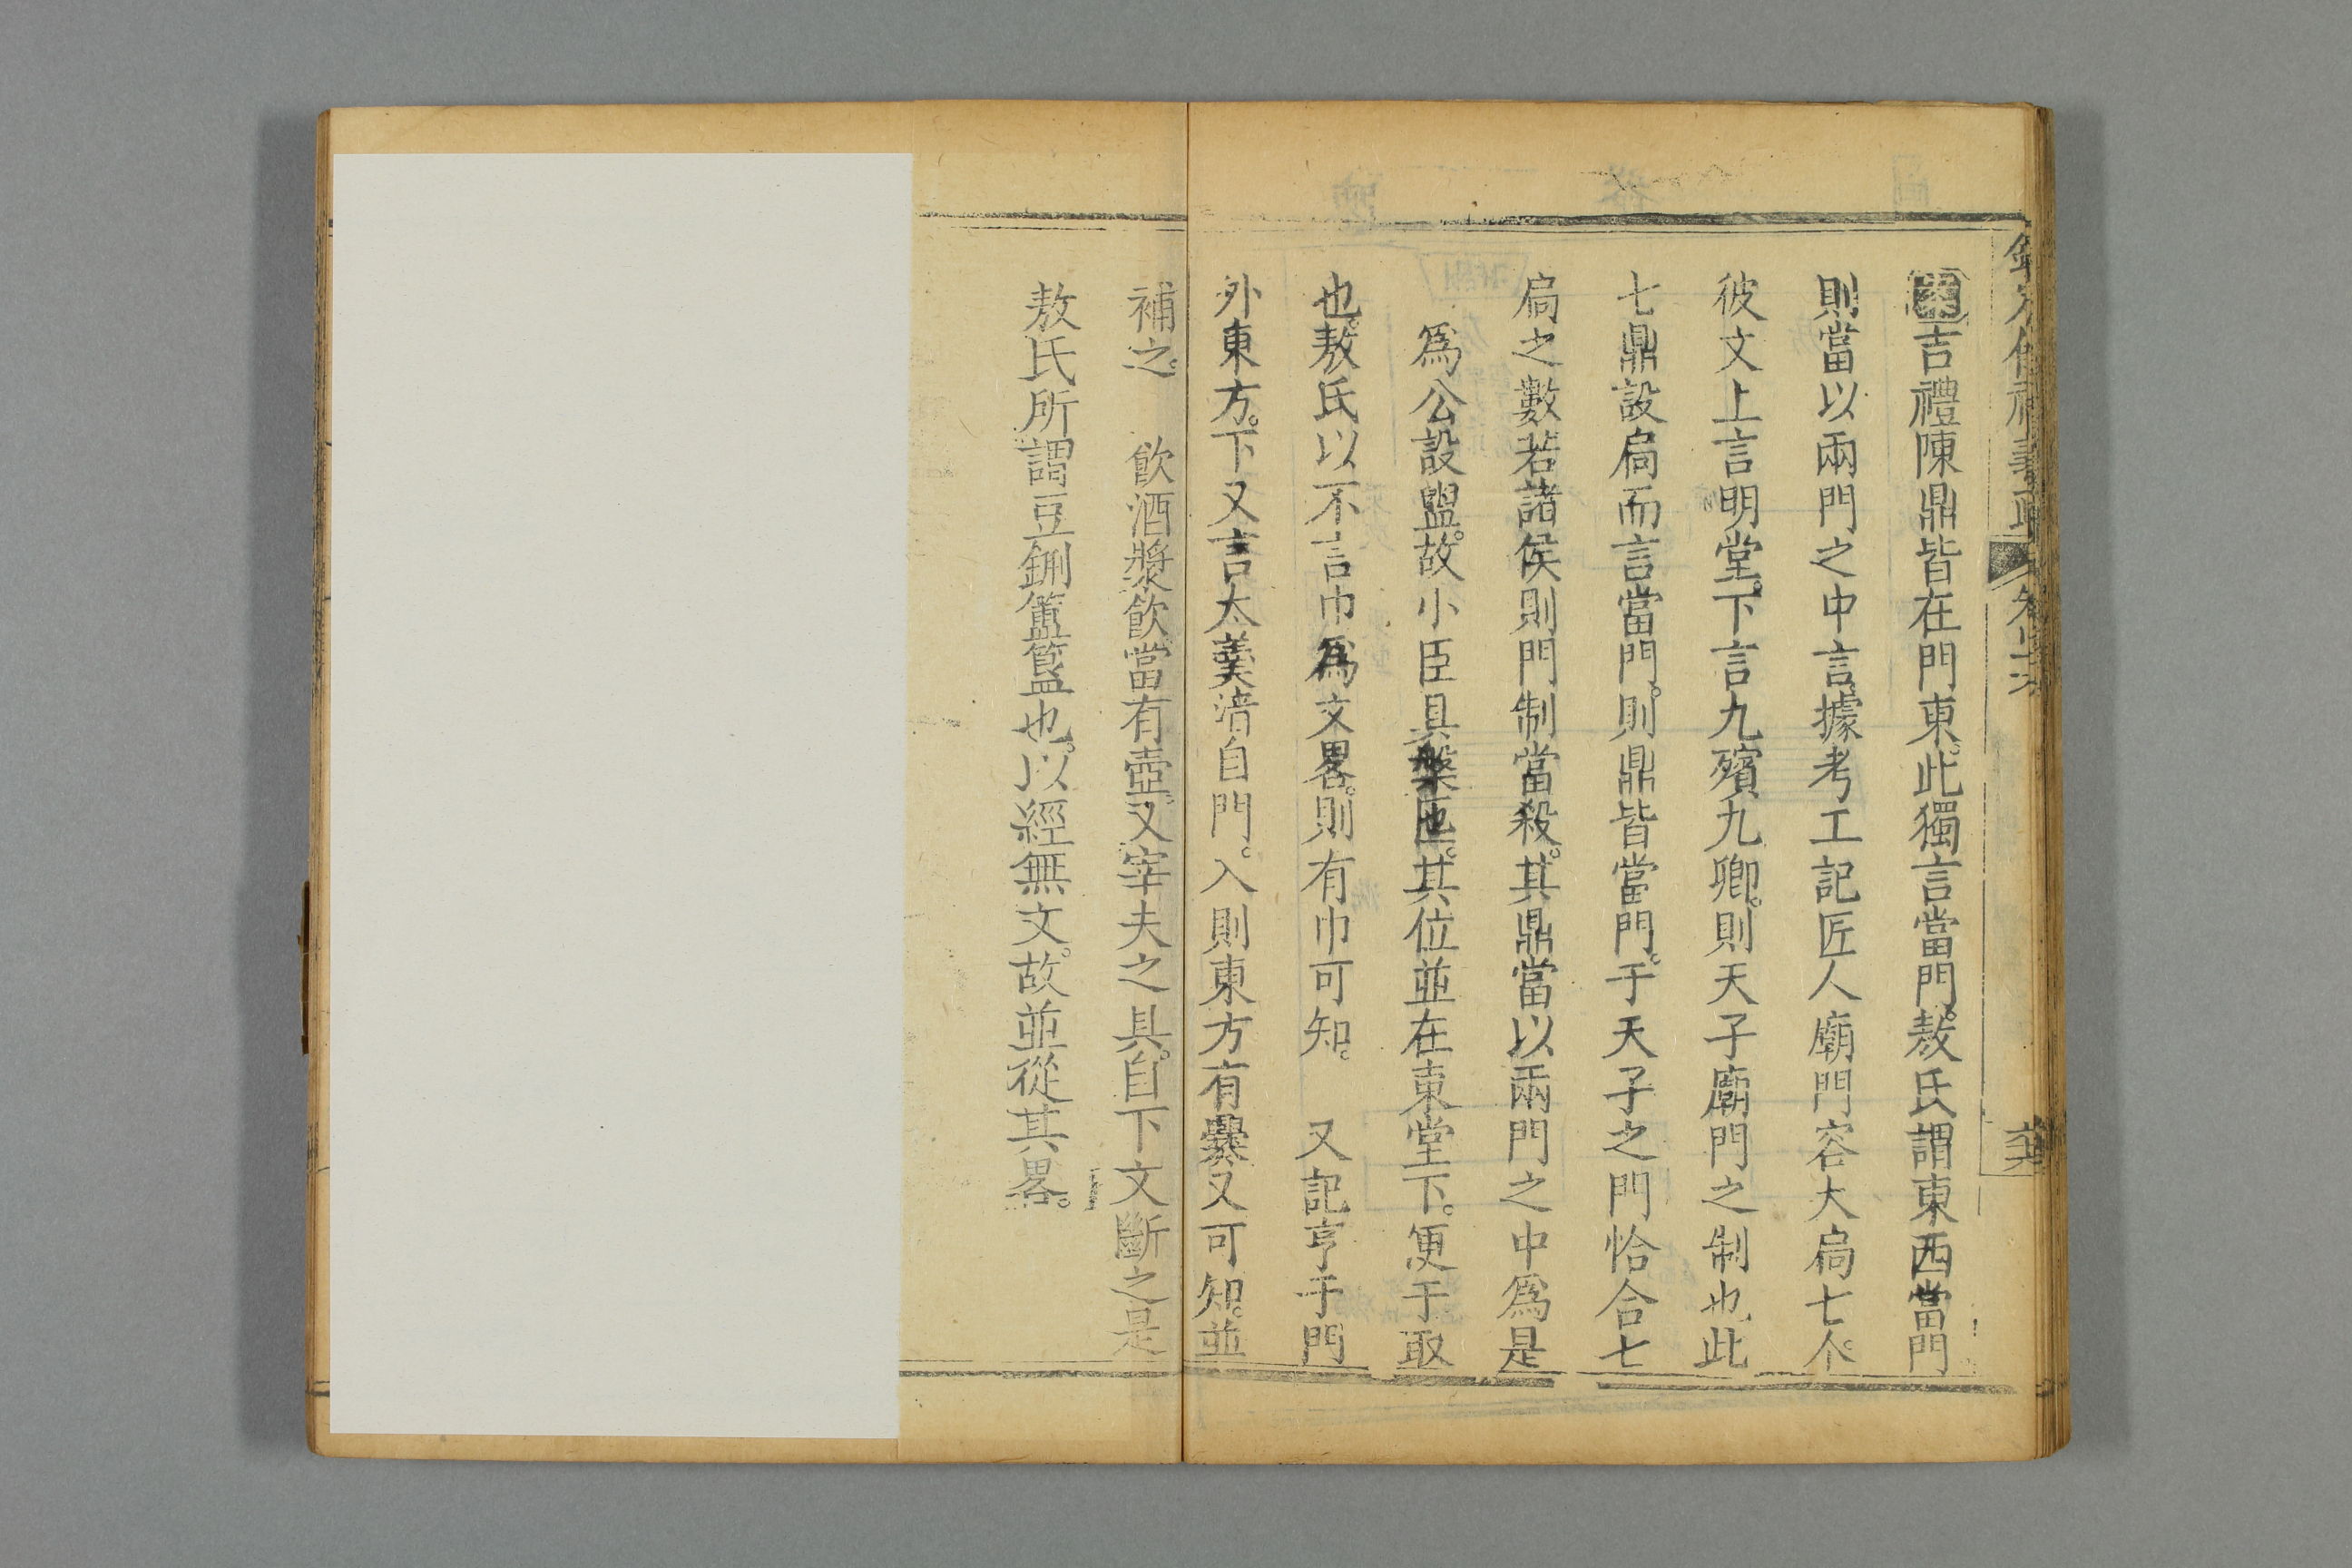 吉禮陳鼎皆在門東。此獨言當門。敖氏謂東西當門
則當以兩門之中言據考工記匠人廟門容大扃七个。
彼文上言明堂。下言九殯九卿。則天子廟門之制也此
七鼎設扃而言當門。則鼎皆當門。于天子之門恰合七
扃之數若諸侯則門制當殺。其鼎當以兩門之中爲是
爲公設盥。故小臣具槃匜。其位並在東堂下。便于取
也。敖氏以不言巾爲文畧。則有巾可知。　又記亨于門
外東方。下又言太羹湆自門。入則東方有爨又可知。並
補之。　飲酒漿飲當有壺。又宰夫之具。自下文斷之是
敖氏所謂豆鉶簠簋也。以經無文。故並從其畧。